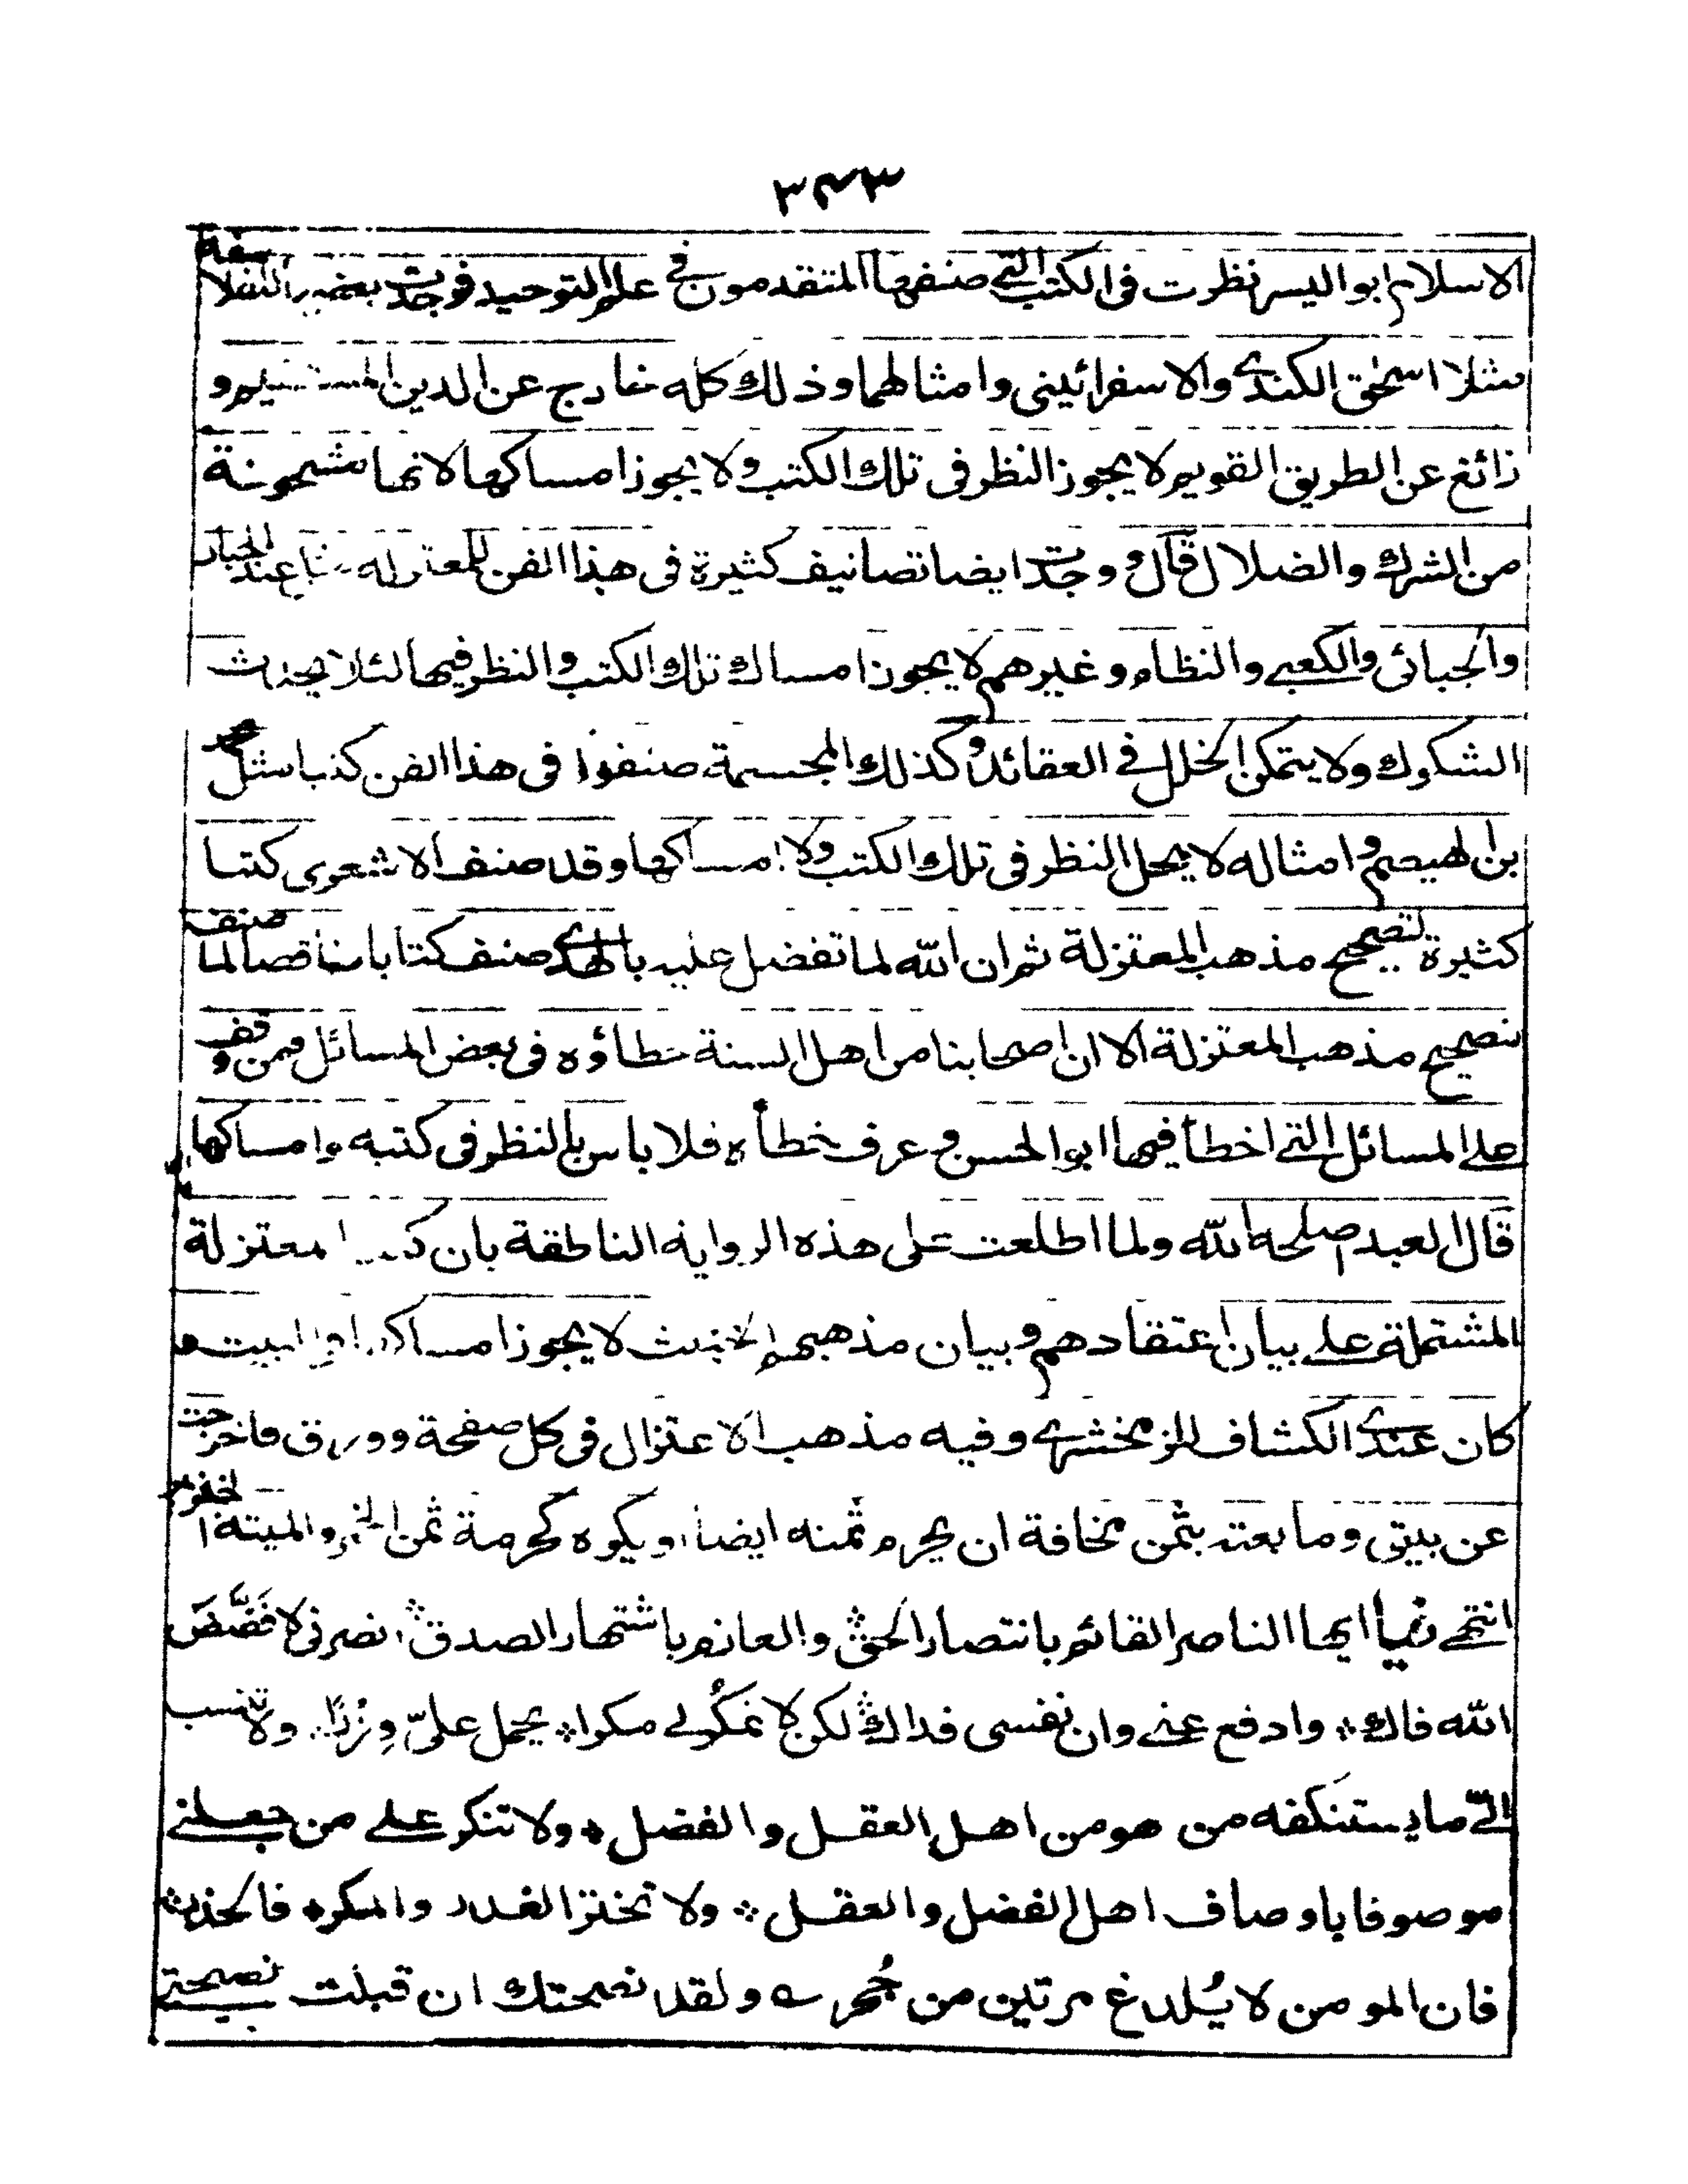 ٣٤٣
الاسلام ابو اليسر نظرت فى الكتب التى صنفها المتقدمون فى علم التوحيد فوجدت بعضها للفلاسفة
مثل اسحٰق الكندى والاسفرائينى وامثالهما وذلك كله خارج عن الدين المستقيم و
زائغ عن الطريق القويم لا يجوز النظر فى تلك الكتب ولا يجوز امساكها لانها مشحونة
من الشرك والضلال قال ووجدت ايضا تصانيف كثيرة فى هذا الفن للمعتزلة مثل عبد الجبار
والجبائى والكعبى والنظام وغيرهم لا يجوز امساك تلك الكتب والنظر فيها لئلا يحدث
الشكوك ولا يتمكن الخلل فى العقائد وكذلك المجسمة صنفوا فى هذا الفن كتبا مثل محمد
بن الهيصم وامثاله لا يحل النظر فى تلك الكتب ولا امساكها وقد صنف الاشعرى كتبا
كثيرة لتصحيح مذهب المعتزلة ثم ان الله لما تفضل عليه بالهدى صنف كتابا مناقضا لما صنف
لتصحيح مذهب المعتزلة الا ان اصحابنا من اهل السنة خطاؤه فى بعض المسائل فمن وقف
على المسائل التى اخطأ فيها ابو الحسن وعرف خطأه فلا باس بالنظر فى كتبه وامساكها
قال العبد اصلحه الله ولما اطلعت على هذه الرواية الناطقة بان كتب المعتزلة
المشتملة على بيان اعتقادهم وبيان مذهبهم الخبيث لا يجوز امساكها فى البيت و
كان عندى الكشاف للزمخشرى وفيه مذهب الاعتزال فى كل صفحة وورق فاخرجت
عن بيتى وما بعته بثمن مخافة ان يحرم ثمنه ايضا او يكره كحرمة ثمن الخمر والميتة الخنزير
انتهى فيا ايها الناصر القائم بانتصار الحق والعازم باشتهار الصدق انصرنى لا فَضَّضَ
الله فاك وادفع عنى وان نفسى فداك لكن لا تمكُر لى مكرا يحمل علىّ وِزرًا ولا تنسب
الىّ ما يستنكفه من هو من اهل العقل والفضل ولا تنكر على من جعلنى
موصوفا باوصاف اهل الفضل والعقل ولا تختر الغدر والمكر فالحذر
فان المومن لا يُلدغ مرتين من جُحر ولقد نصحتك ان قبلت نصيحتى